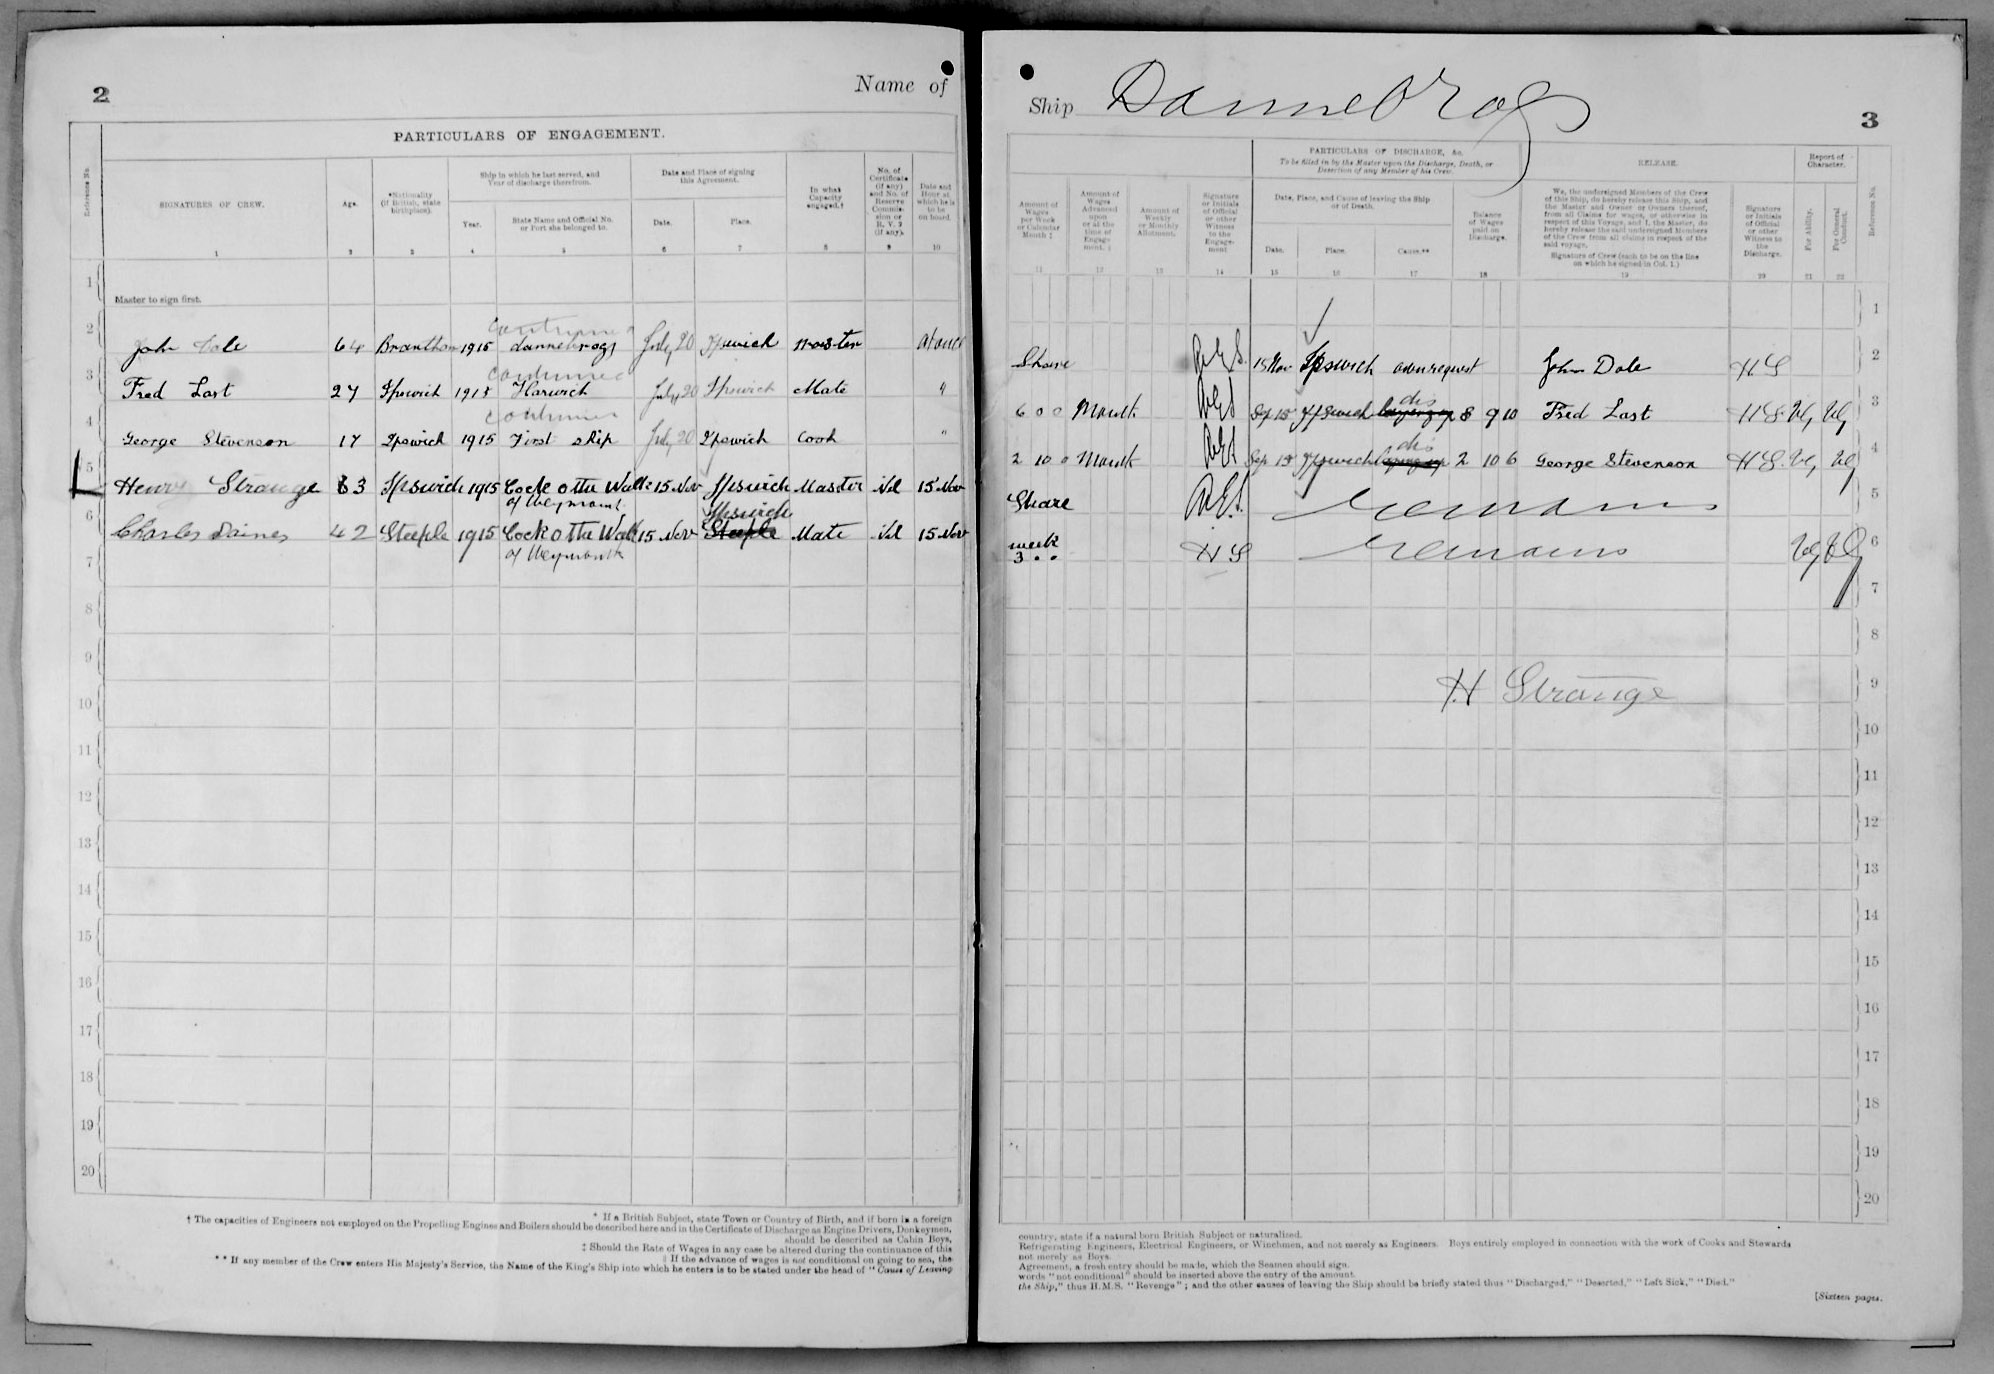 2
Name of
PARTICULARS OF ENGAGEMENT.
Reference No.
SIGNATURES OF CREW.
Age.
*Nationality (if British, state birthplace).
Ship in which he last served, and Year of discharge therefrom.
Year.
State Name and Official No. or Port she belonged to.
Date and Place of signing this Agreement.
Date.
Place.
In what Capacity engaged.†
No. of Certificate (if any) and No. of Reserve Commission or R. V. 2 (if any).
Date and Hour at which he is to be on board.
1 2 3 4 5 6 7 8 9 10
1 Master to sign first.
continued
2 John Dale 64 Brantham 1915 dannebrog July 20 Ipswich master at once
continued
3 Fred Last 27 Ipswich 1915 Harwich July 20 Ipswich Mate "
continued
4 George Stevenson 17 Ipswich 1915 First ship July 20 Ipswich Cook "
5 Henry Strange 3 Ipswich 1915 Cock o the Walk 15 Nov Ipswich Master Nil 15 Nov
of Weymouth
Ipswich
6 Charles Daines 42 Steeple 1915 Cock o the Walk 15 Nov Steeple Mate Nil 15 Nov
of Weymouth
7
8
9
10
11
12
13
14
15
16
17
18
19
20
* If a British Subject, state Town or Country of Birth, and if born in a foreign
† The capacities of Engineers not employed on the Propelling Engines and Boilers should be described here and in the Certificate of Discharge as Engine Drivers, Donkeymen,
should be described as Cabin Boys,
‡ Should the Rate of Wages in any case be altered during the continuance of this
If the advance of wages is not conditional on going to sea, the
** If any member of the Crew enters His Majesty's Service, the Name of the King's Ship into which he enters is to be stated under the head of "Cause of Leaving
Ship Dannebrog
3
Amount of Wages per Week or Calendar Month ‡
Amount of Wages Advanced upon or at the time of Engagement.
Amount of Weekly or Monthly Allotment.
Signature or Initials of Official or other Witness to the Engagement
PARTICULARS OF DISCHARGE, &c.
To be filled in by the Master upon the Discharge, Death, or Desertion of any Member of his Crew.
Date, Place, and Cause of leaving the Ship or of Death.
Date.
Place.
Cause.**
Balance of Wages paid on Discharge.
RELEASE.
We, the undersigned Members of the Crew of this Ship, do hereby release this Ship, and the Master and Owner or Owners thereof, from all Claims for wages, or otherwise in respect of this Voyage, and I, the Master, do hereby release the said undersigned Members of the Crew from all claims in respect of the said voyage.
Signature of Crew (each to be on the line on which he signed in Col. 1.)
Signature or Initials of Official or other Witness to the Discharge.
Report of Character.
For Ability.
For General Conduct.
Reference No.
11 12 13 14 15 16 17 18 19 20 21 22
1
Share 15 Nov Ipswich own request John Dale HS 2
dis
6 0 0 Month Sep 15 Ipswich 8 9 10 Fred Last HS VG VG 3
dis
2 10 0 Month Sep 15 Ipswich 2 10 6 George Stevenson HS VG VG 4
Share Remains 5
week
3 " " HS Remains VG VG 6
7
8
H Strange 9
10
11
12
13
14
15
16
17
18
19
20
country, state if a natural born British Subject or naturalized.
Refrigerating Engineers, Electrical Engineers, or Winchmen, and not merely as Engineers. Boys entirely employed in connection with the work of Cooks and Stewards
not merely as Boys.
Agreement, a fresh entry should be made, which the Seamen should sign.
words "not conditional" should be inserted above the entry of the amount.
the Ship," thus H.M.S. "Revenge"; and the other causes of leaving the Ship should be briefly stated thus "Discharged," "Deserted," "Left Sick," "Died."
[Sixteen pages.